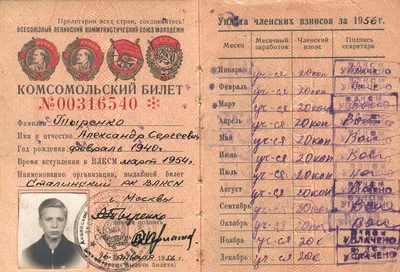 Пролетарии всех стран, соединяйтесь!
ВСЕСОЮЗНЫЙ ЛЕНИНСКИЙ КОММУНИСТИЧЕСКИЙ СОЮЗ МОЛОДЕЖИ
КОМСОМОЛЬСКИЙ БИЛЕТ
№00316540
Фамилия Тыренко
Имя и отчество Александр Сергеевич
Год рождения февраль 1940г.
Время вступления в ВЛКСМ март 1954г.
Наименование организации, выдавшей билет
Сталинский РК ВЛКСМ
г. Москвы
16 января 1956
Уплата членских взносов за 1956 г.
Месяц Месячный заработок Членский взнос Подпись секретаря
Январь уч-ся 20коп УПЛАЧЕНО
Февраль уч-ся 20коп
Март уч-ся 20коп
Апрель уч-ся 20коп
Май уч-ся 20коп
Июнь уч-ся 20коп
Июль уч-ся 20коп
Август уч-ся 20коп
Сентябрь уч-ся 20коп
Октябрь уч-ся 20коп
Ноябрь уч-ся 20к УПЛАЧЕНО
Декабрь уч-ся 20к